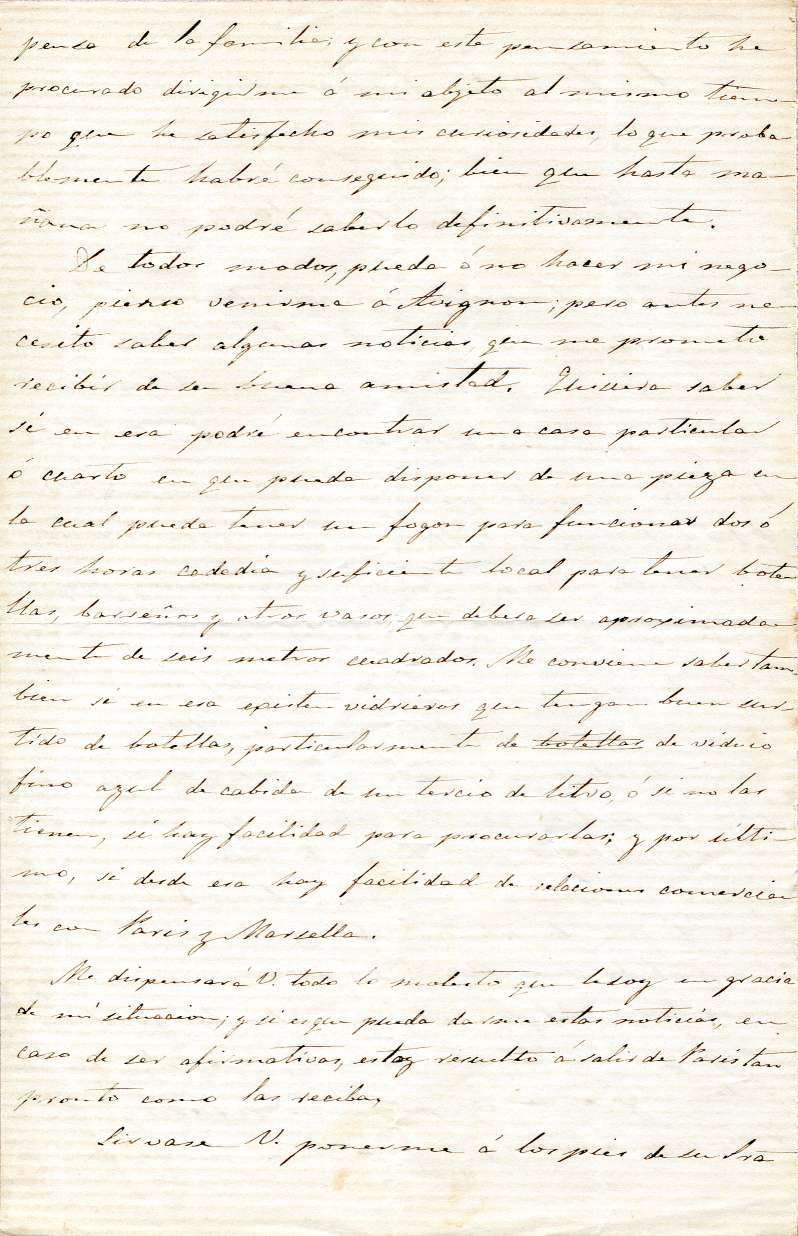 pensa de la familia; y con este pensamiento he
procurado dirigirme á mi objeto al mismo tiem-
po que he satisfecho mis curiosidades, lo que proba
blemente habré conseguido; bien que hasta ma-
ñana no podré saberlo definitivamente.
De todos modos, pueda ó no hacer mi nego-
cio, pienso venirme á Avignon; pero antes ne
cesito saber algunas noticias, que me prometo
recibir de su buena amistad. Quisiera saber
si en esa podré encontrar una casa particular
ó cuarto en que pueda disponer de una pieza en
la cual pueda tener un fogon para funcionar dos ó
tres horas cada dia y suficiente local para tener bote
llas, barreños y otros vasos, que debera ser aproximada
mente de seis metros cuadrados. Me conviene saber tam-
bien si en esa existen vidrieros que tengan buen sur-
tido de botellas, particularmente de botellas de vidrio
fino azul de cabida de un tercio de litro, ó si no las
tienen, si hay facilidad para procurarlas; y por últi-
mo, si desde esa hay facilidad de relaciones comercia
les con Paris y Marsella.
Me dispensará V. todo lo molesto que le soy en gracia
de mi situacion; y si es que pueda darme estas noticias, en
caso de ser afirmativas, estoy resuelto á salir de Paris tan
pronto como las reciba.
Sirvase V. ponerme á los pies de su Sra